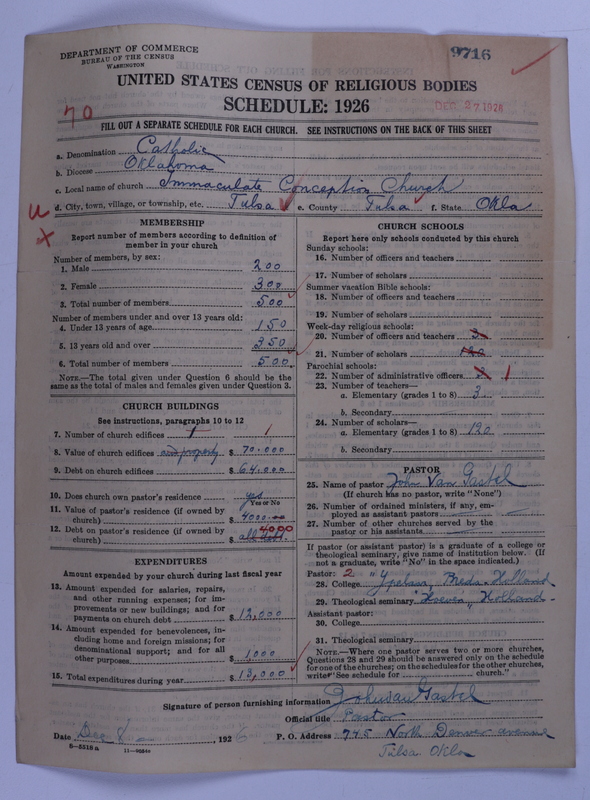 DEPARTMENT OF COMMERCE
BUREAU OF THE CENSUS
WASHINGTON
9716
UNITED STATES CENSUS OF RELIGIOUS BODIES
SCHEDULE: 1926
DEC 27 1926
70
FILL OUT A SEPARATE SCHEDULE FOR EACH CHURCH. SEE INSTRUCTIONS ON THE BACK OF THIS SHEET
a. Denomination Catholic
b. Diocese Oklahoma
c. Local name of church Immaculate Conception Church
d. City, town, village, or township, etc. Tulsa e. County Tulsa f. State Okla
MEMBERSHIP
Report number of members according to definition of
member in your church
Number of members, by sex:
1. Male 200
2. Female 300
3. Total number of members 500
Number of members under and over 13 years old:
4. Under 13 years of age 150
5. 13 years old and over 350
6. Total number of members 500.
NOTE.—The total given under Question 6 should be the
same as the total of males and females given under Question 3.
CHURCH BUILDINGS
See instructions, paragraphs 10 to 12
7. Number of church edifices 1 1
8. Value of church edifices and property $ 70.000
9. Debt on church edifices $ 64.000
10. Does church own pastor's residence yes
Yes or No
11. Value of pastor's residence (if owned by
church) $ 4000.00
12. Debt on pastor's residence (if owned by
church) $ all debt. 4000
EXPENDITURES
Amount expended by your church during last fiscal year
13. Amount expended for salaries, repairs,
and other running expenses; for im-
provements or new buildings; and for
payments on church debt $ 12,000
14. Amount expended for benevolences, in-
cluding home and foreign missions; for
denominational support; and for all
other purposes $ 1,000
15. Total expenditures during year $ 13,000
CHURCH SCHOOLS
Report here only schools conducted by this church
Sunday schools:
16. Number of officers and teachers
17. Number of scholars
Summer vacation Bible schools:
18. Number of officers and teachers
19. Number of scholars
Week-day religious schools:
20. Number of officers and teachers 3
21. Number of scholars 120
Parochial schools:
22. Number of administrative officers 1
23. Number of teachers—
a. Elementary (grades 1 to 8) 3
b. Secondary
24. Number of scholars—
a. Elementary (grades 1 to 8) 120
b. Secondary
PASTOR
25. Name of pastor John Van Gastel
(If church has no pastor, write "None")
26. Number of ordained ministers, if any, em-
ployed as assistant pastors
27. Number of other churches served by the
pastor or his assistants
If pastor (or assistant pastor) is a graduate of a college or
theological seminary, give name of institution below. (If
not a graduate, write "No" in the space indicated.)
Pastor: 2
28. College Breda. Holland
29. Theological seminary "Hoeven" Holland.
Assistant pastor:
30. College
31. Theological seminary
NOTE.—Where one pastor serves two or more churches,
Questions 28 and 29 should be answered only on the schedule
for one of the churches; on the schedules for the other churches,
write "See schedule for church."
Signature of person furnishing information John van Gastel
Official title Pastor
Date Dec 8, 1926 P. O. Address 745 North Denver avenue
Tulsa Okla
8—5518a 11—9034